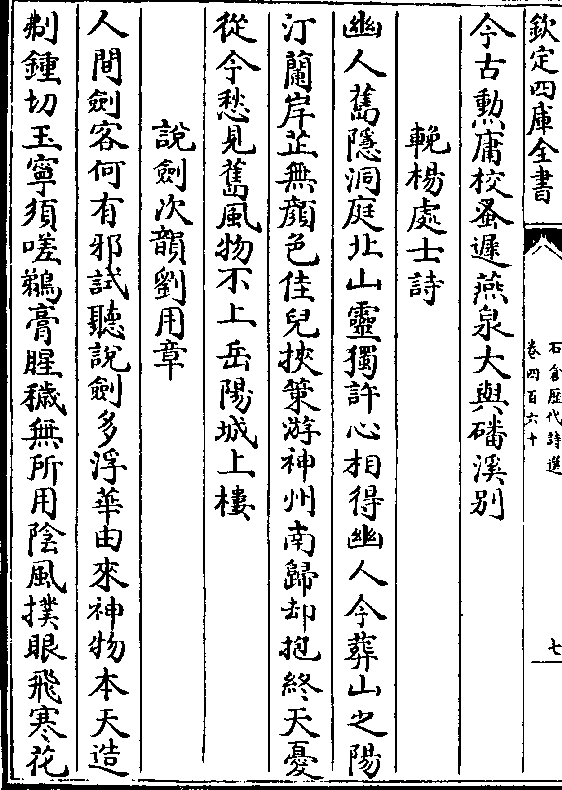 欽定四庫全書
石倉歴代詩選
卷四百六十
七
今古勲庸校蚤遲燕泉大與磻溪别
輓楊處士詩
幽人舊隱洞庭北山靈獨許心相得幽人今葬山之陽
汀蘭岸芷無顔色佳兒挾策游神州南歸却抱終天憂
從今愁見舊風物不上岳陽城上樓
說劍次韻劉用章
人間劍客何有邪試聽說劍多浮華由來神物本天造
剸鍾切玉寧須嗟鵜膏腥穢無所用陰風撲眼飛寒花